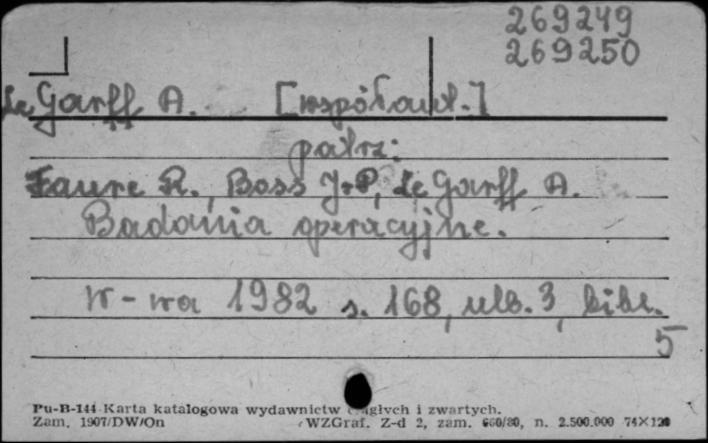 269249
269250
Le Garff A. [współaut.]
patrz:
Faure R., Boss J-P, Le Garff A.
Badania operacyjne.
W-wa 1982 s. 168, ulb. 3, bibl.
5
Pu-B-144 Karta katalogowa wydawnictw ciągłych i zwartych.
Zam. 1907/DW/On WZGraf. Z-d 2, zam. 660/80, n. 2.500.000 74×120